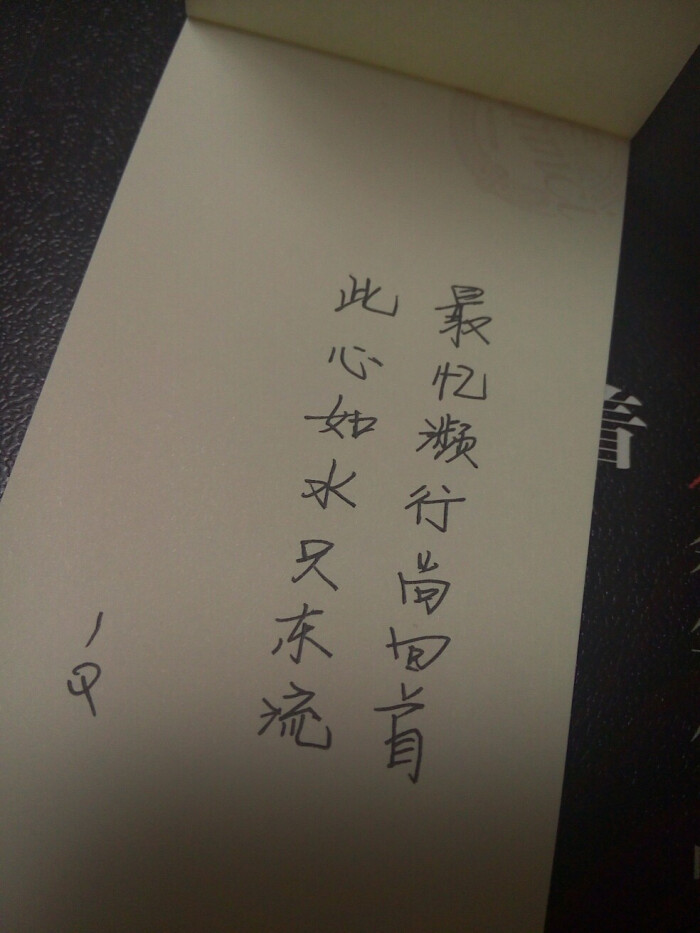 最忆濒行尚回首
此心如水只东流